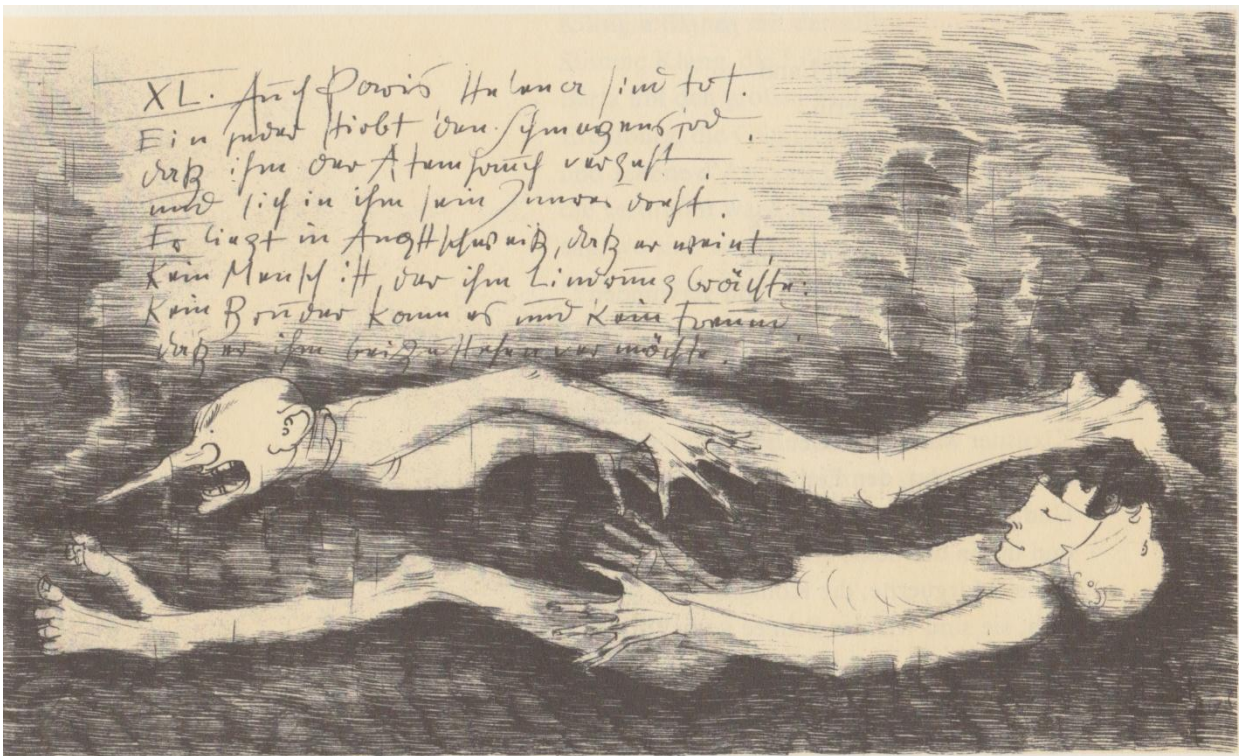 XL. Auch Paris Helena sind tot.
Ein jeder stirbt den Schmerzenstod
daß ihm der Atemhauch vergeht
und sich in ihm sein Inneres dreht.
Er liegt in Angstschweiß, daß er weint,
Kein Mensch ist, der ihm Linderung brächte:
Kein Bruder kann es und kein Freund
daß er ihm beizustehen vermöchte.